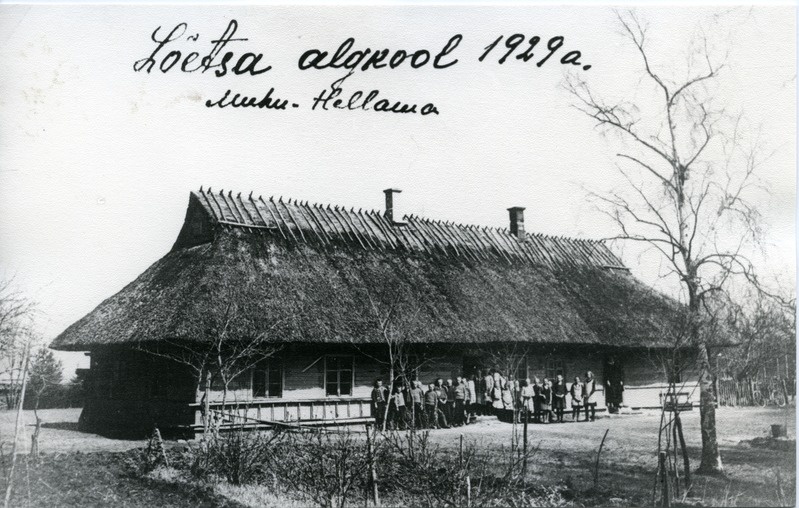 Lõetsa algkool 1929 a.
Muhu-Hellama